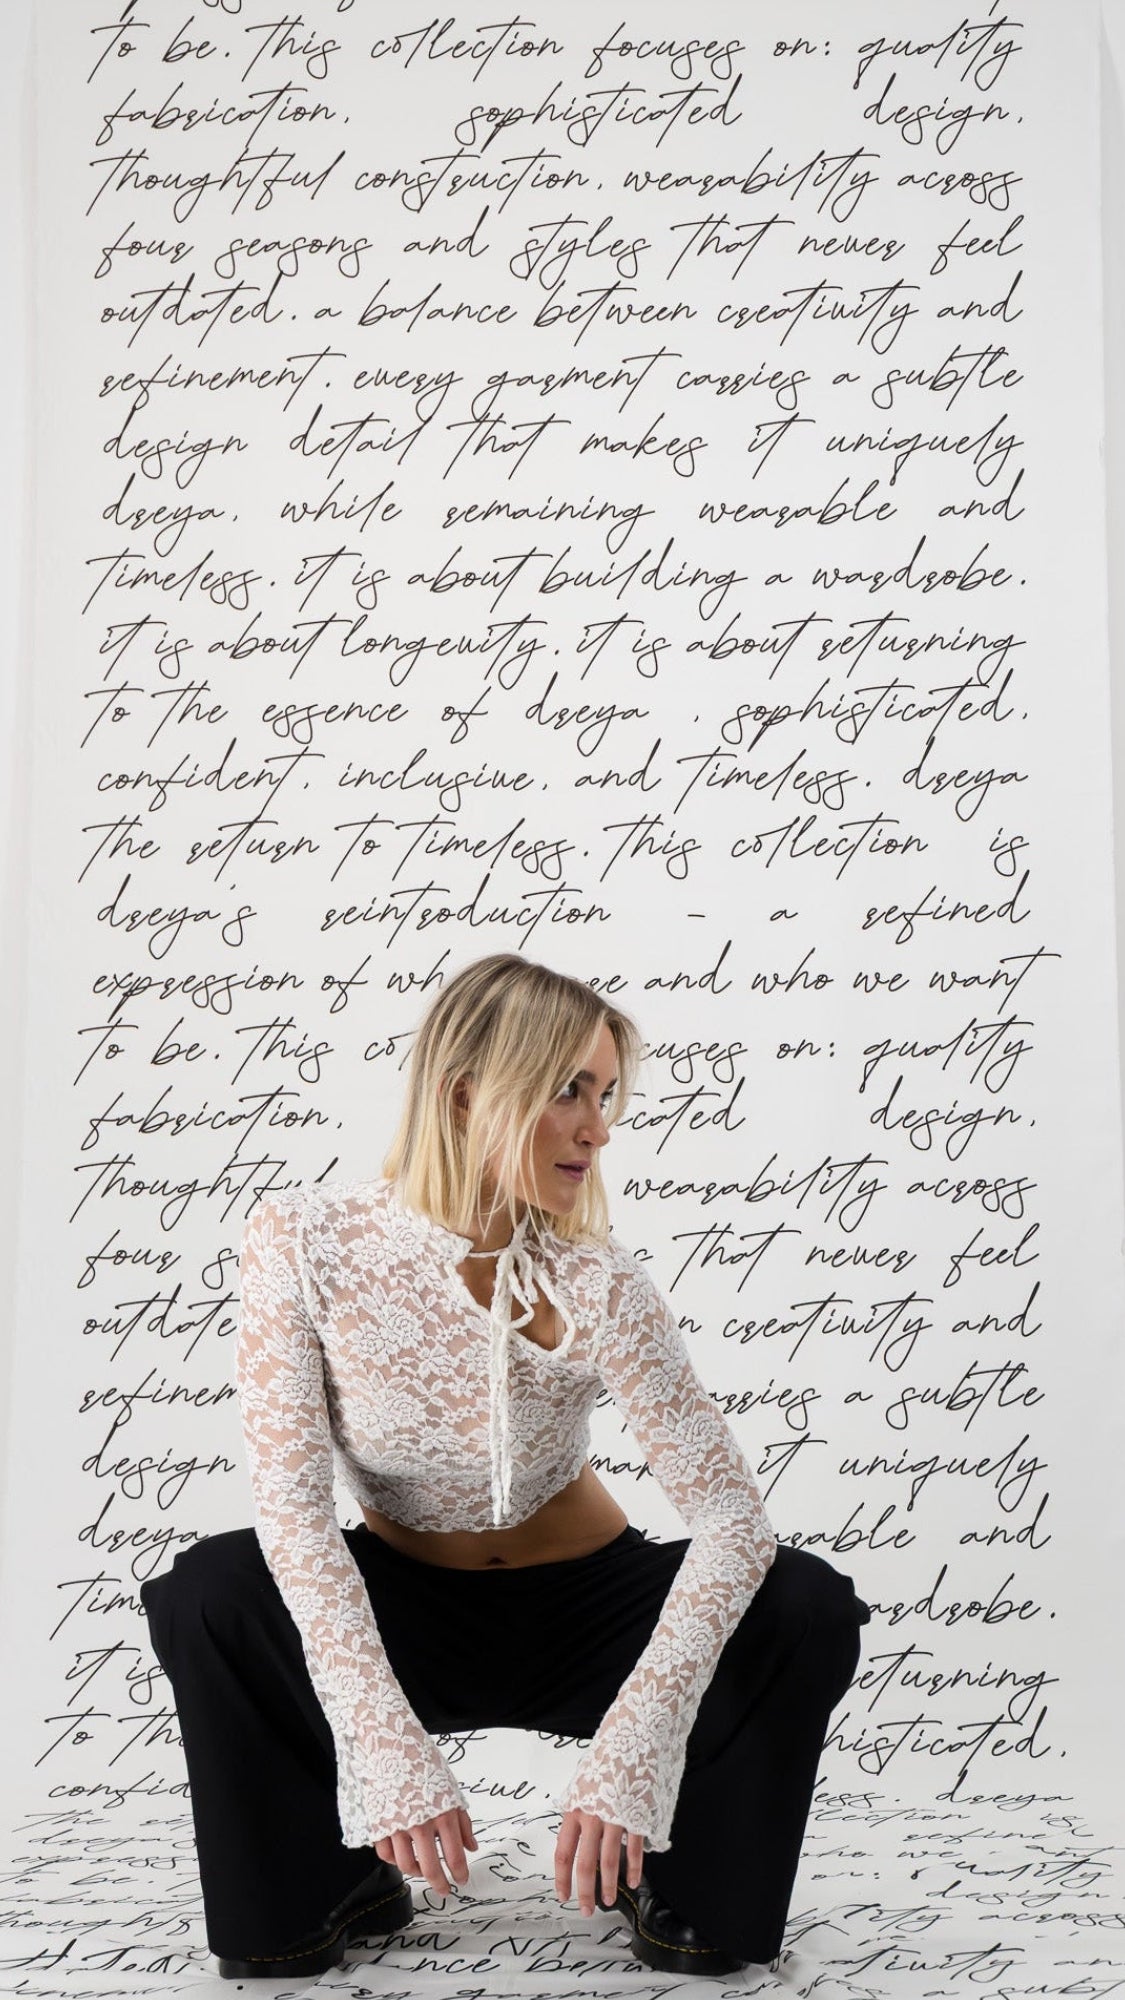 to be. this collection focuses on: quality
fabrication, sophisticated design,
thoughtful construction, wearability across
four seasons and styles that never feel
outdated. a balance between creativity and
refinement. every garment carries a subtle
design detail that makes it uniquely
dreya, while remaining wearable and
timeless. it is about building a wardrobe.
it is about longevity. it is about returning
to the essence of dreya , sophisticated,
confident, inclusive, and timeless. dreya
the return to timeless. this collection is
dreya's reintroduction - a refined
expression of wh re and who we want
to be. this co cuses on: quality
fabrication, cated design,
thoughtful wearability across
four s s that never feel
outdate n creativity and
refinem e arries a subtle
design mak it uniquely
dreya arable and
time ardrobe.
it is eturning
to the of dre histicated,
confid sive, less. dreya
the lection is
dreya's a refine
express who we
to be. on: quality
design
thought ty across
and
nce betw tivity an
every garment a subt